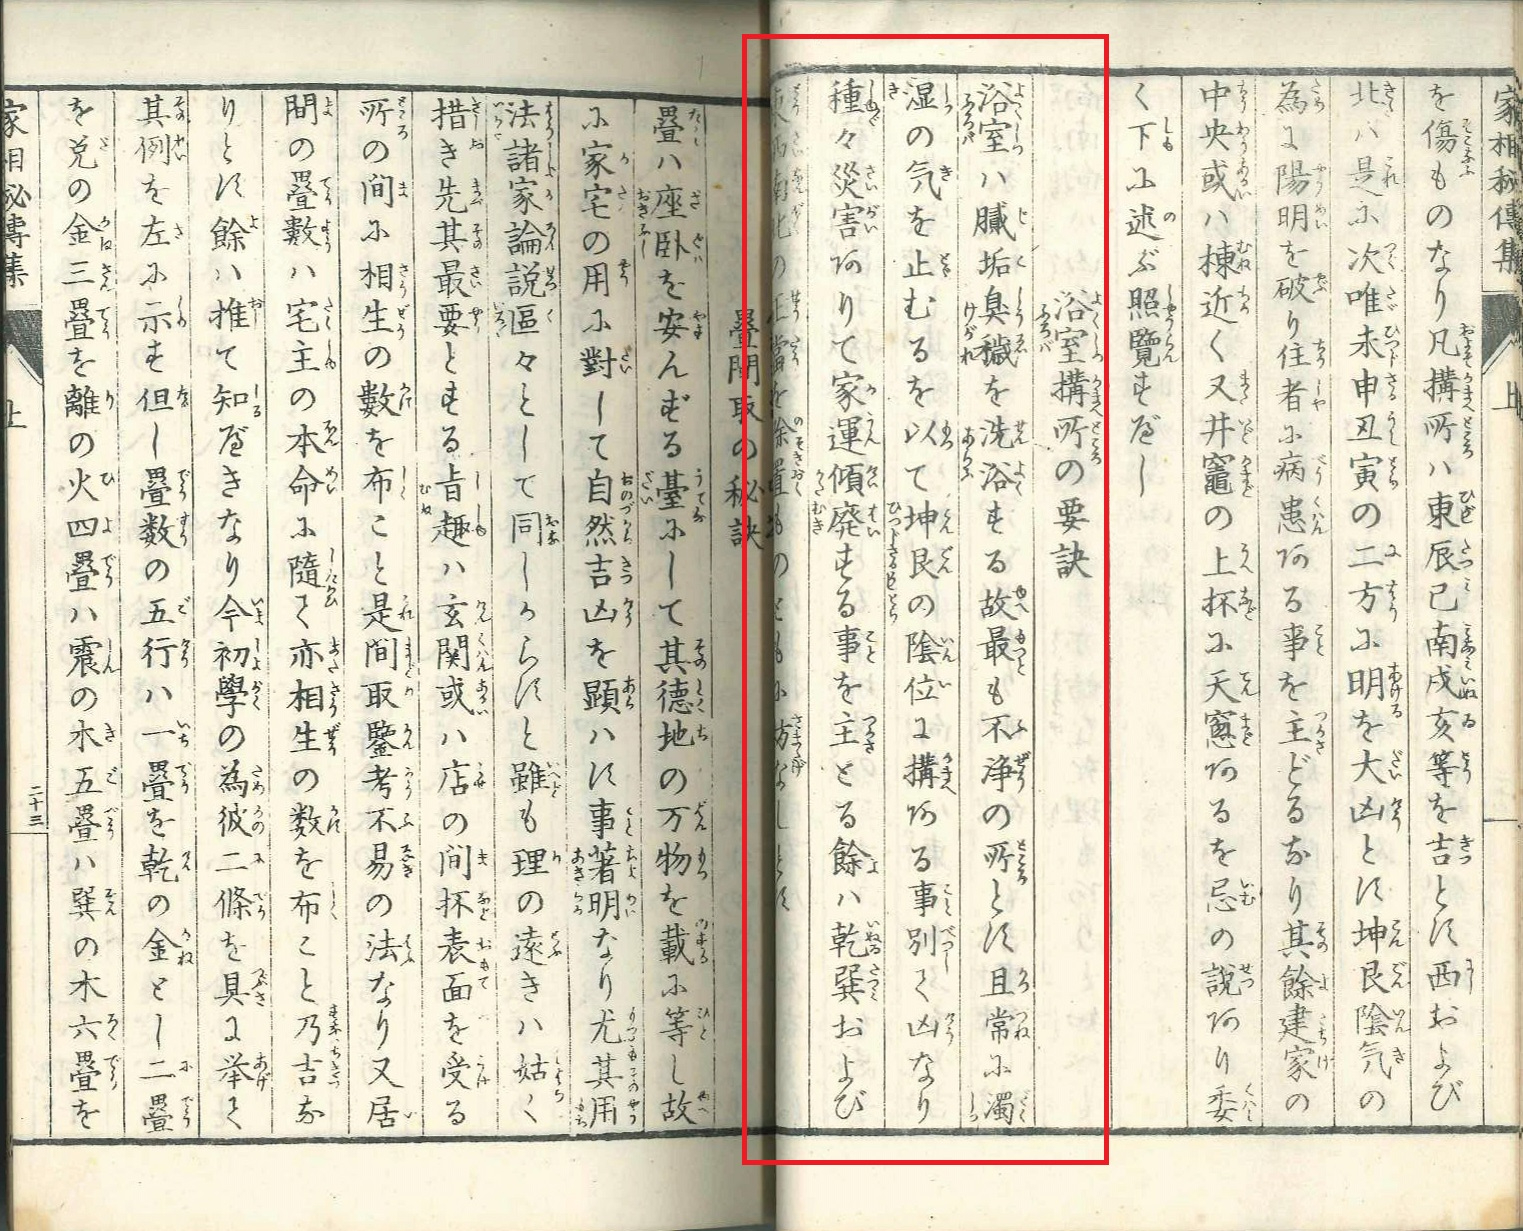 家相秘傳集 上
を傷ものなり凡搆所ハ東辰巳南戌亥等を吉とす西および
北ハ是に次唯未申丑寅の二方に明を大凶とす坤艮陰気の
為に陽明を破り住者に病患ある事を主どるなり其餘建家の
中央或ハ棟近く又井竈の上抔に天窓あるを忌の説あり委
く下に述ぶ照覽すべし
浴室搆所の要訣
浴室ハ膩垢臭穢を洗浴する故最も不浄の所とす且常に濁
湿の気を止むるを以て坤艮の陰位に搆ある事別て凶なり
種々災害ありて家運傾廃する事を主どる餘ハ乾巽および
東西南北の正當を除置ものとも に妨なしとす
疊間取の秘訣
疊ハ座卧を安んずる臺にして其德地の万物を載に等し故
に家宅の用に對して自然吉凶を顕ハす事著明なり尤其用
法諸家論説區々として同しからずと雖も理の遠きハ姑く
措き先其最要とする旨趣ハ玄関或ハ店の間抔表面を受る
所の間に相生の數を布こと是間取鑒考不易の法なり又居
間の疊數ハ宅主の本命に隨て亦相生の数を布こと乃吉な
りとす餘ハ推て知べきなり今初學の為彼二條を具に挙て
其例を左に示す但し疊数の五行ハ一疊を乾の金とし二疊
を兌の金三疊を離の火四疊ハ震の木五疊ハ巽の木六疊を
家相秘傳集 上 二十三